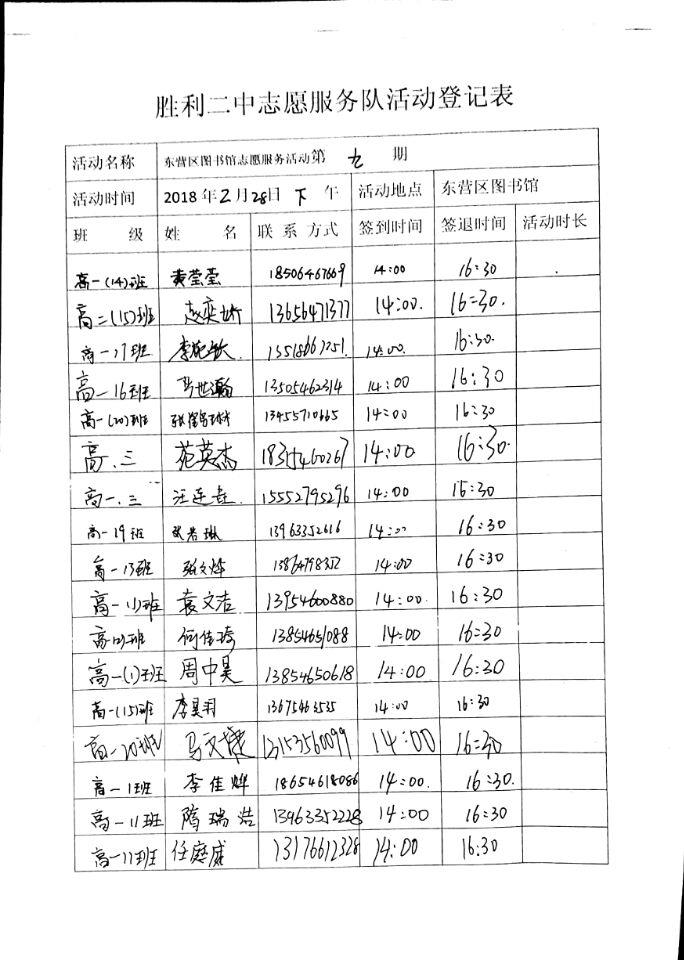 胜利二中志愿服务队活动登记表
活动名称 东营区图书馆志愿服务活动第 九 期
活动时间 2018年2月28日 下 午 活动地点 东营区图书馆
班 级 姓 名 联 系 方式 签到时间 签退时间 活动时长
高一(14)班 黄莹莹 18506467669 14:00 16:30
高二(15)班 赵奕 13656471377 14:00. 16:30.
高一17班 李 14:00. 16:30.
高一16班 世瀚 13505462314 14:00 16:30
高一(20)班 张 14:00 16:30
高.三 范英杰 18315460267 14:00 16:30.
高一.三 汪连垚 15552795296 14:00 16:30
高一19班 琳 13963352616 14:00 16:30
高一13班 张文烨 14:00 16:30
高一11班 袁文洁 13954600880 14:00. 16:30
何佳琦 13854651088 14:00 16:30
高一(1)班 周中昊 13854650618 14:00 16:30
高一(15)班 李昊羽 13675463535 14:00 16:30
高一20班 马文捷 13153560099 14:00 16:30
高一1班 李佳烨 18654618086 14:00. 16:30.
高一11班 隋瑞浩 13963352228 14:00 16:30
高一11班 任庭威 13176612328 14:00 16:30